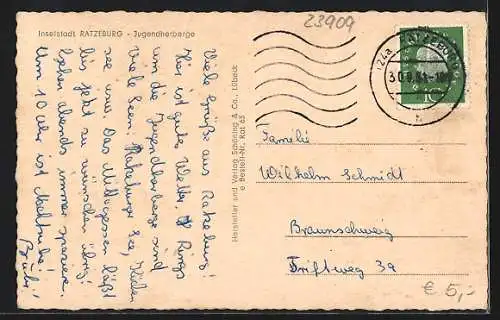 Inselstadt RATZEBURG - Jugendherberge
23909
Viele Grüße aus Ratzeburg!
Hier ist gutes Wetter. Rings
um die Jugendherberge sind
viele Seen. Ratzeburger See, Küchen
see usw. Das Mittagessen läßt
bis jetzt zu wünschen übrig!
Gehen abends immer spazieren.
Um 10 Uhr ist Nachtruhe!
Hersteller und Verlag Schöning & Co., Lübeck
Bestell-Nr. Rat 65
(24a) RATZEBURG
10
Familie
Wilhelm Schmidt
Braunschweig
Triftweg 39
€ 5,-